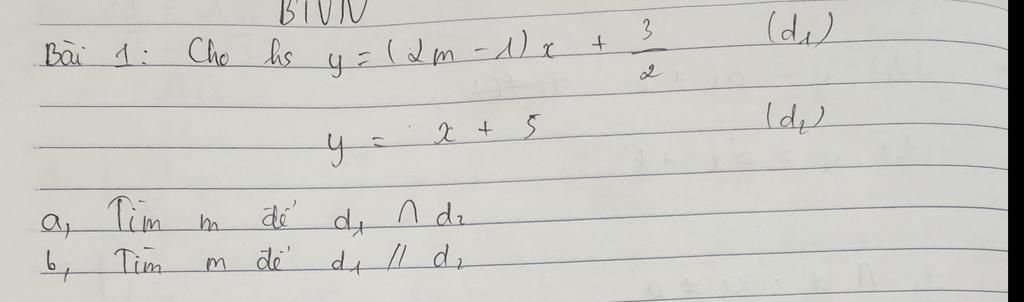 BTVN
Bài 1: Cho hs y = (2m - 1)x + 3/2 (d₁)
y = x + 5 (d₂)
a, Tìm m để d₁ ∩ d₂
b, Tìm m để d₁ // d₂